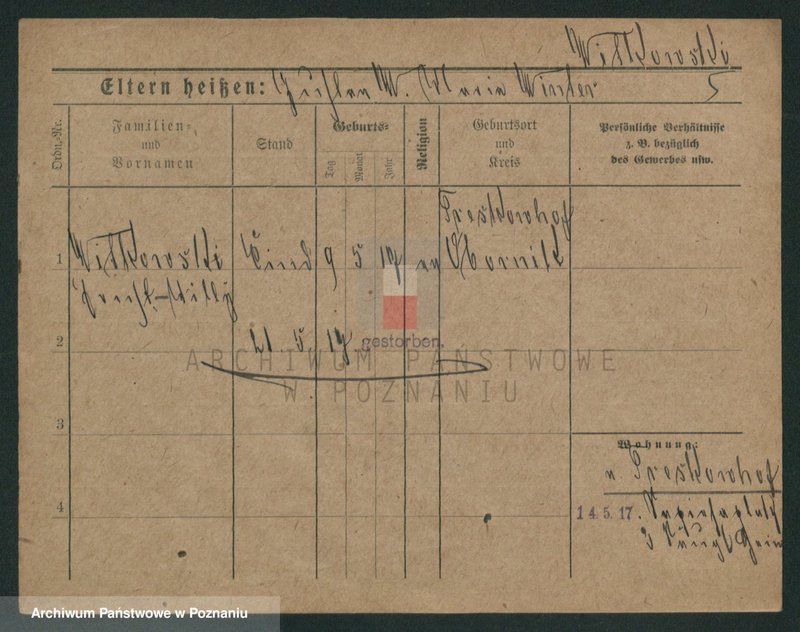 Witkowski
Eltern heißen: W. Maria Winter 5
Ordn.-Nr.
Familien-
und
Vornamen
Stand
Geburts-
Tag
Monat
Jahr
Religion
Geburtsort
und
Kreis
Persönliche Verhältnisse
z. B. bezüglich
des Gewerbes usw.
Treskowhof
1 Witkowski Kind 9 5 17 ev Obornik
Willy
2 21. 5 17 gestorben.
ARCHIWUM PAŃSTWOWE
W POZNANIU
3
Wohnung:
Treskowhof
4 14.5.17.
3
Archiwum Państwowe w Poznaniu